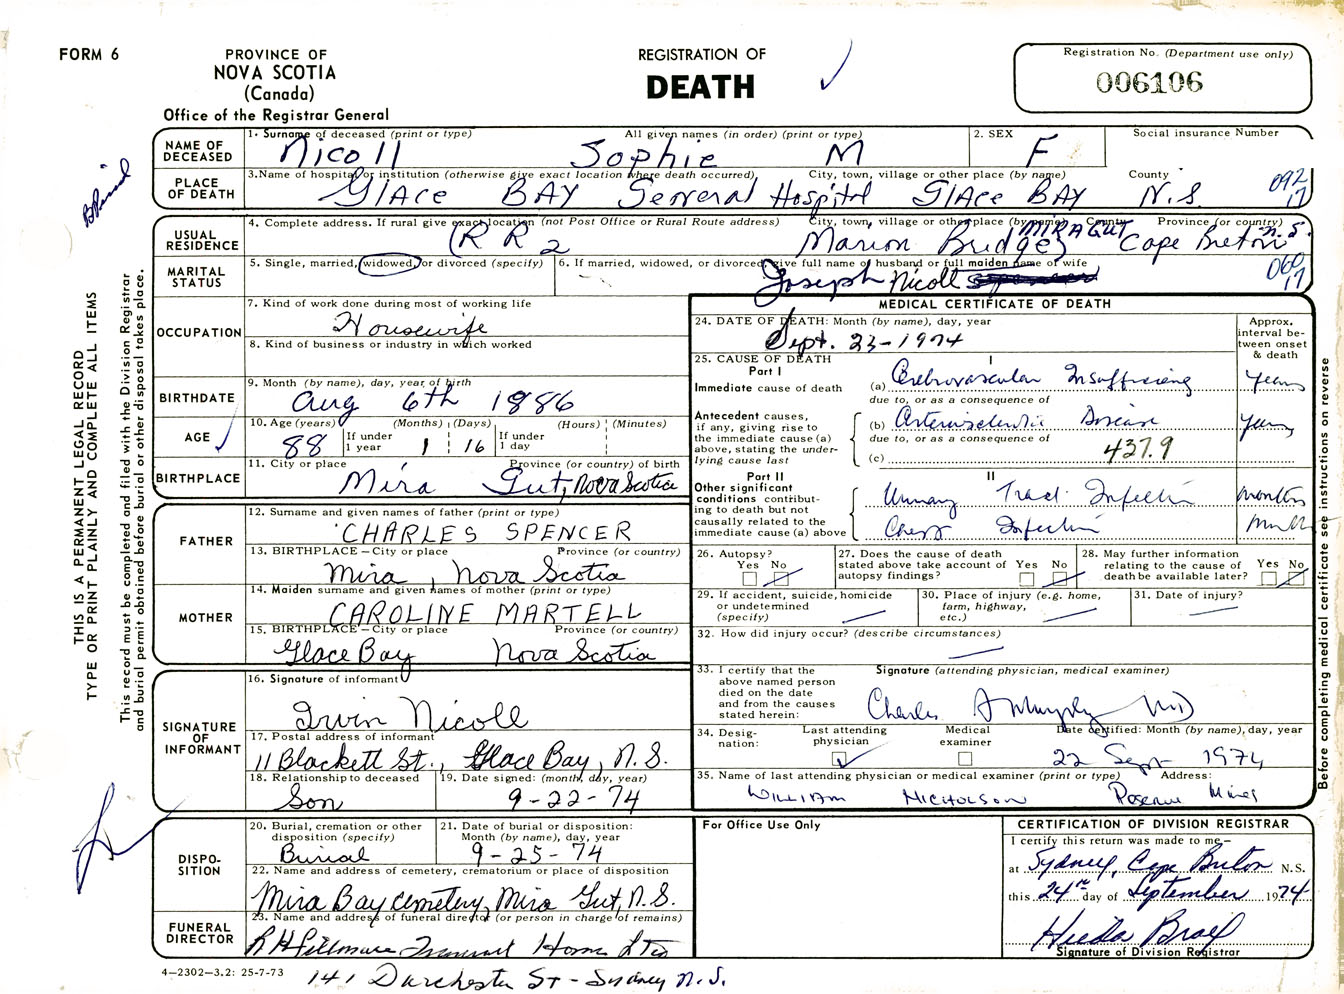 FORM 6
PROVINCE OF
NOVA SCOTIA
(Canada)
Office of the Registrar General
REGISTRATION OF
DEATH
Registration No. (Department use only)
006106
NAME OF DECEASED
1. Surname of deceased (print or type) All given names (in order) (print or type) 2. SEX Social insurance Number
Nicoll Sophie M F
PLACE OF DEATH
3. Name of hospital or institution (otherwise give exact location where death occurred) City, town, village or other place (by name) County
Glace BAY General Hospital Glace BAY N.S. 092 17
USUAL RESIDENCE
4. Complete address. If rural give exact location (not Post Office or Rural Route address) City, town, village or other place (by name) County Province (or country)
(R R 2 Marion Bridge) MIRA GUT Cape Breton N.S.
MARITAL STATUS
5. Single, married, widowed, or divorced (specify) 6. If married, widowed, or divorced, give full name of husband or full maiden name of wife
Joseph Nicoll
060 17
OCCUPATION
7. Kind of work done during most of working life
Housewife
8. Kind of business or industry in which worked
BIRTHDATE
9. Month (by name), day, year of birth
Aug 6th 1886
AGE
10. Age (years) (Months) (Days) (Hours) (Minutes)
88 If under 1 year 1 16 If under 1 day
BIRTHPLACE
11. City or place Province (or country) of birth
Mira Gut, Nova Scotia
FATHER
12. Surname and given names of father (print or type)
CHARLES SPENCER
13. BIRTHPLACE – City or place Province (or country)
Mira, Nova Scotia
MOTHER
14. Maiden surname and given names of mother (print or type)
CAROLINE MARTELL
15. BIRTHPLACE – City or place Province (or country)
Glace Bay Nova Scotia
SIGNATURE OF INFORMANT
16. Signature of informant
Irvin Nicoll
17. Postal address of informant
11 Blackett St., Glace Bay, N.S.
18. Relationship to deceased 19. Date signed: (month, day, year)
Son 9-22-74
DISPO-
SITION
20. Burial, cremation or other disposition (specify) 21. Date of burial or disposition: Month (by name), day, year
Burial 9-25-74
22. Name and address of cemetery, crematorium or place of disposition
Mira Bay Cemetery, Mira Gut, N.S.
FUNERAL DIRECTOR
23. Name and address of funeral director (or person in charge of remains)
R H Fillmore Funeral Home Ltd
4–2302–3.2: 25-7-73
141 Dorchester St - Sydney N.S.
MEDICAL CERTIFICATE OF DEATH
24. DATE OF DEATH: Month (by name), day, year
Sept. 23-1974
Approx. interval be-
tween onset & death
25. CAUSE OF DEATH
Part I
I
Immediate cause of death (a) Cerebrovascular Insufficiency years
due to, or as a consequence of
Antecedent causes, if any, giving rise to the immediate cause (a) above, stating the under-
lying cause last
(b) Arteriosclerotic Disease years
due to, or as a consequence of
(c) 437.9
Part II
II
Other significant conditions contribut-
ing to death but not causally related to the immediate cause (a) above
Urinary Tract Infection months
Chest Infection
26. Autopsy? Yes No
27. Does the cause of death stated above take account of autopsy findings? Yes No
28. May further information relating to the cause of death be available later? Yes No
29. If accident, suicide, homicide or undetermined (specify)
30. Place of injury (e.g. home, farm, highway, etc.)
31. Date of injury?
32. How did injury occur? (describe circumstances)
33. I certify that the above named person died on the date and from the causes stated herein:
Signature (attending physician, medical examiner)
Charles A Murphy MD
34. Desig-
nation: Last attending physician Medical examiner Date certified: Month (by name), day, year
22 Sept 1974
35. Name of last attending physician or medical examiner (print or type) Address:
WILLIAM NICHOLSON Reserve Mines
For Office Use Only
CERTIFICATION OF DIVISION REGISTRAR
I certify this return was made to me–
at Sydney, Cape Breton N.S.
this 24th day of September 1974
Signature of Division Registrar
THIS IS A PERMANENT LEGAL RECORD
TYPE OR PRINT PLAINLY AND COMPLETE ALL ITEMS
This record must be completed and filed with the Division Registrar
and burial permit obtained before burial or other disposal takes place.
Before completing medical certificate see instructions on reverse